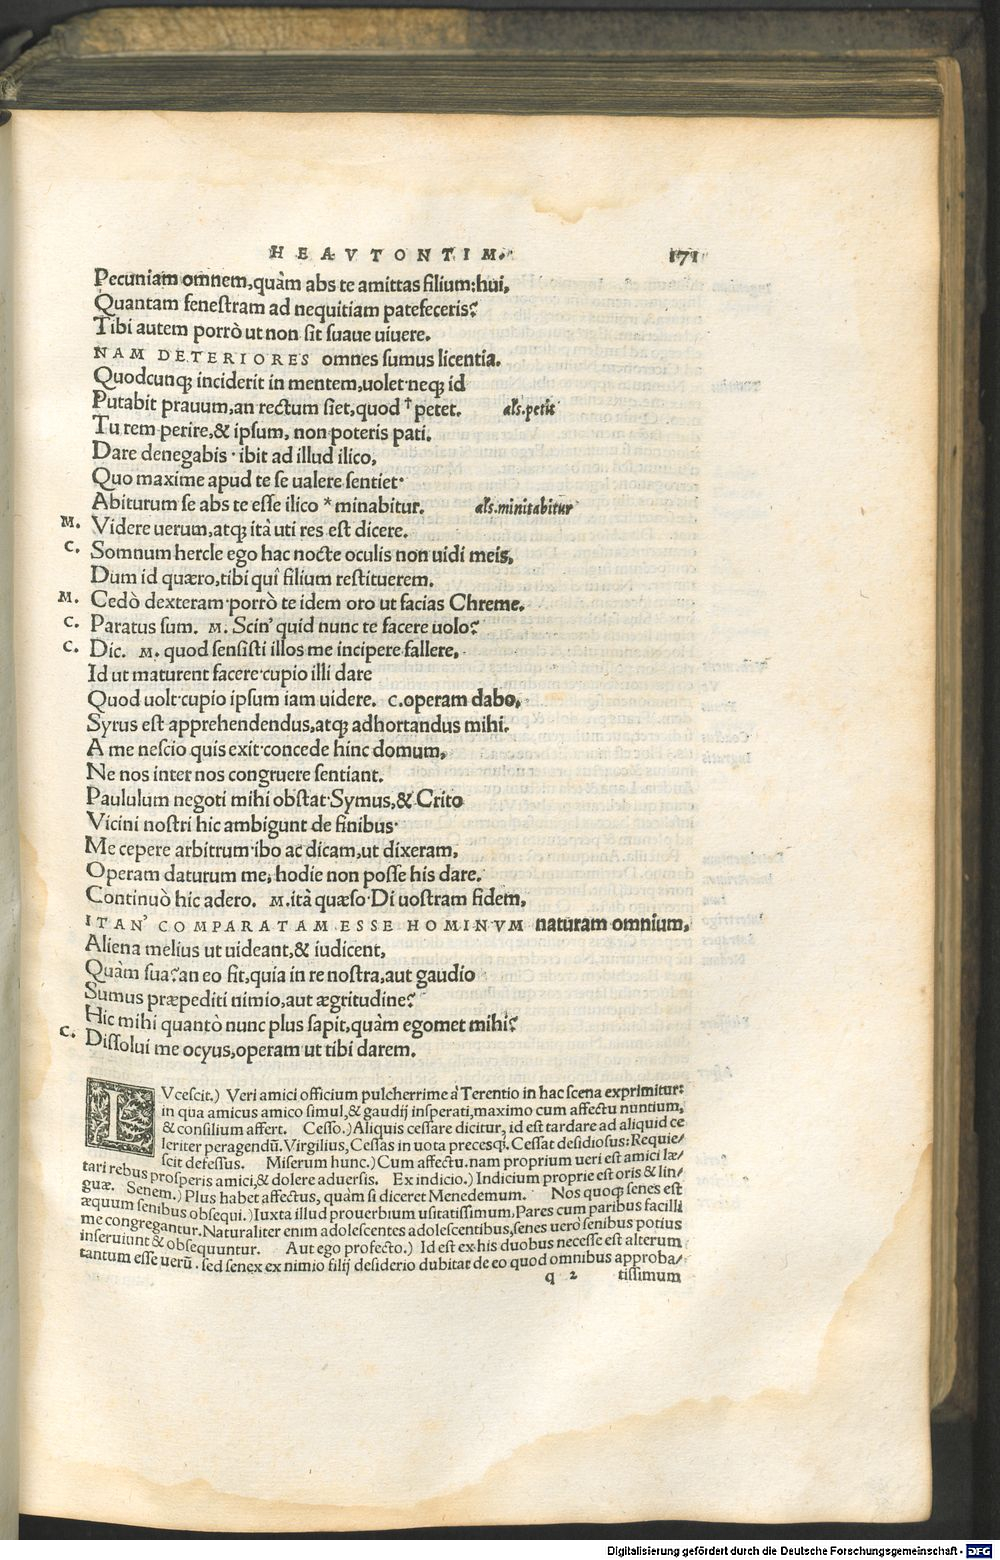 HEAVTONTIM. 171
Pecuniam omnem, quàm abs te amittas filium: hui,
Quantam fenestram ad nequitiam patefeceris?
Tibi autem porrò ut non sit suaue uiuere.
NAM DETERIORES omnes sumus licentia.
Quodcunq; inciderit in mentem, uolet· neq; id
Putabit prauum, an rectum siet, quod † petet. als. petit
Tu rem perire, & ipsum, non poteris pati.
Dare denegabis· ibit ad illud ilico,
Quo maxime apud te se ualere sentiet·
Abiturum se abs te esse ilico * minabitur. als. minitabitur
M. Videre uerum, atq; ità uti res est dicere.
C. Somnum hercle ego hac nocte oculis non uidi meis,
Dum id quæro, tibi quî filium restituerem.
M. Cedò dexteram· porrò te idem oro ut facias Chreme.
C. Paratus sum. M. Scin' quid nunc te facere uolo?
C. Dic. M. quod sensisti illos me incipere fallere,
Id ut maturent facere· cupio illi dare
Quod uolt· cupio ipsum iam uidere. C. operam dabo,
Syrus est apprehendendus, atq; adhortandus mihi.
A me nescio quis exit· concede hinc domum,
Ne nos inter nos congruere sentiant.
Paululum negoti mihi obstat· Symus, & Crito
Vicini nostri hic ambigunt de finibus·
Me cepere arbitrum· ibo ac dicam, ut dixeram,
Operam daturum me, hodie non posse his dare.
Continuò hic adero. M. ità quæso· Di uostram fidem,
ITAN' COMPARATAM ESSE HOMINVM naturam omnium,
Aliena melius ut uideant, & iudicent,
Quàm sua? an eo fit, quia in re nostra, aut gaudio
Sumus præpediti nimio, aut ægritudine?
Hic mihi quantò nunc plus sapit, quàm egomet mihi?
C. Dissolui me ocyus, operam ut tibi darem.
LVcescit.) Veri amici officium pulcherrime à Terentio in hac scena exprimitur:
in qua amicus amico simul, & gaudij insperati, maximo cum affectu nuntium,
& consilium affert. Cesso.) Aliquis cessare dicitur, id est tardare ad aliquid ce
leriter peragendũ. Virgilius, Cessas in uota precesq;. Cessat desidiosus: Requie/
scit defessus. Miserum hunc.) Cum affectu. nam proprium ueri est amici læ/
tari rebus prosperis amici, & dolere aduersis. Ex indicio.) Indicium proprie est oris & lin/
guæ. Senem.) Plus habet affectus, quàm si diceret Menedemum. Nos quoq; senes est
æquum senibus obsequi.) Iuxta illud prouerbium usitatissimum, Pares cum paribus facilli
me congregantur. Naturaliter enim adolescentes adolescentibus, senes uerò senibus potius
inseruiunt & obsequuntur. Aut ego profecto.) Id est ex his duobus necesse est alterum
tantum esse uerũ. sed senex ex nimio filij desiderio dubitat de eo quod omnibus approba/
q 2 tissimum
Digitalisierung gefördert durch die Deutsche Forschungsgemeinschaft - DFG